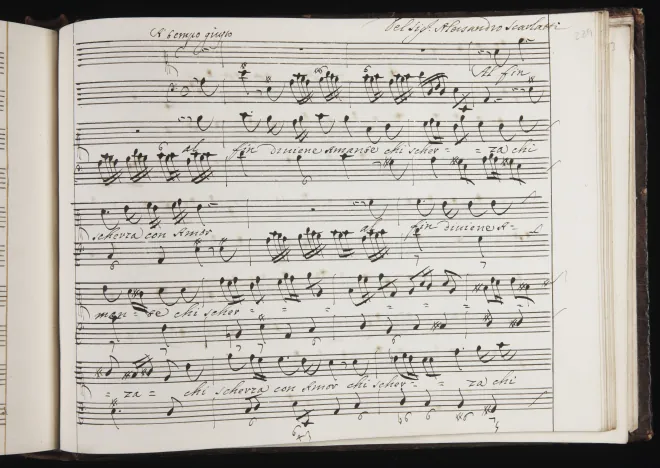 A tempo giusto Del Sig.r Alessandro Scarlatti
Al fin
al fin diviene Amante chi scher = = za chi
scherza con Amor al fin diviene A=
man=te chi scher= = = = = =
= za = chi scherza con Amor chi scher= = za chi